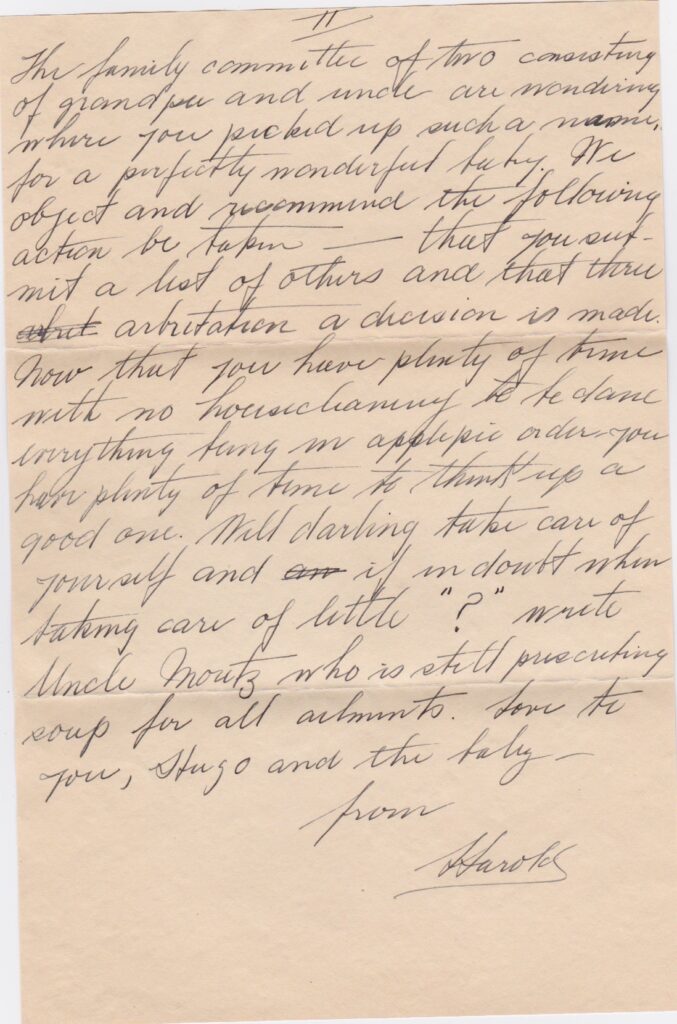 II
The family committee of two consisting
of grandpa and uncle are wondering
where you picked up such a name,
for a perfectly wonderful baby. We
object and recommend the following
action be taken — that you sub-
mit a list of others and that thru
arbit arbritation a decision is made.
Now that you have plenty of time
with no housecleaning to be done
everything being in applepie order - you
have plenty of time to think up a
good one. Well darling take care of
yourself and an if in doubt when
taking care of little "?" write
Uncle Moritz who is still prescribing
soup for all ailments. Love to
you, Hugo and the baby —
from
Harold